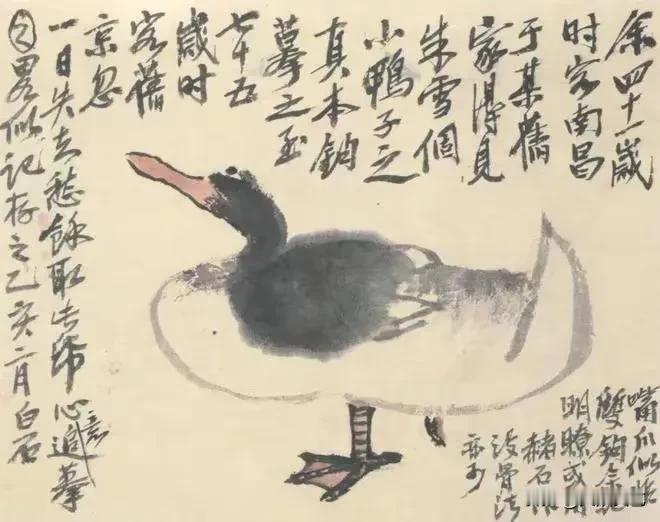 余四十一歲
时客南昌
于某舊
家得見
朱雪個
小鴨子之
真本鉤
摹之至
七十五
歲时
客舊
京忽
一日失去愁餘取此帋心意追摹
之畧似記存之乙亥二月白石
嘴爪似
雙鉤余記
明瞭或用
赭石
没骨法
亦可